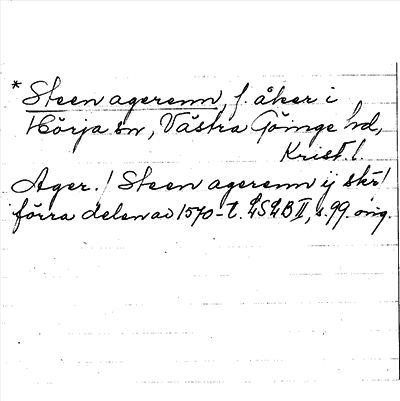 * Steen agerenn, f. åker i
Hörja sn, Västra Göinge hd,
Krist. l.
Ager. / Steen agerenn ij skr /
förra delen av 1570-t. LSLB II, s. 99 orig.